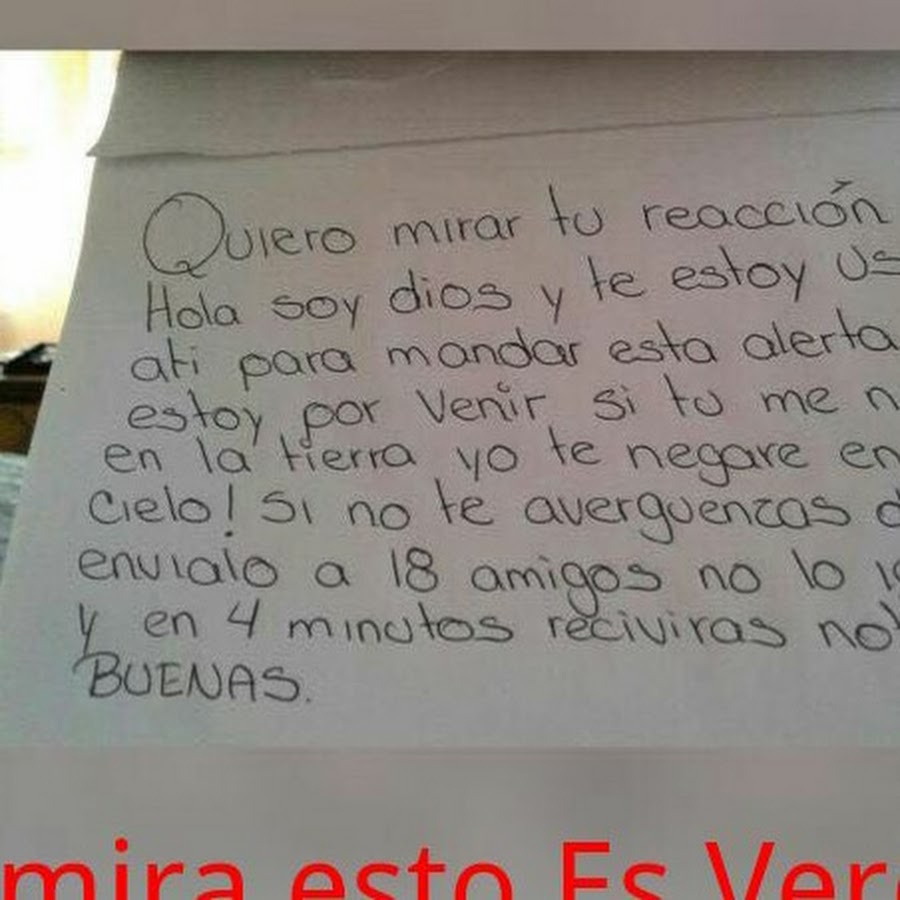 Quiero mirar tu reacción
Hola soy dios y te estoy
ati para mandar esta alerta
estoy por Venir si tu me
en la tierra yo te negare en
Cielo! Si no te averguenzas
envialo a 18 amigos no lo
y en 4 minutos reciviras
BUENAS.
mira esto Es